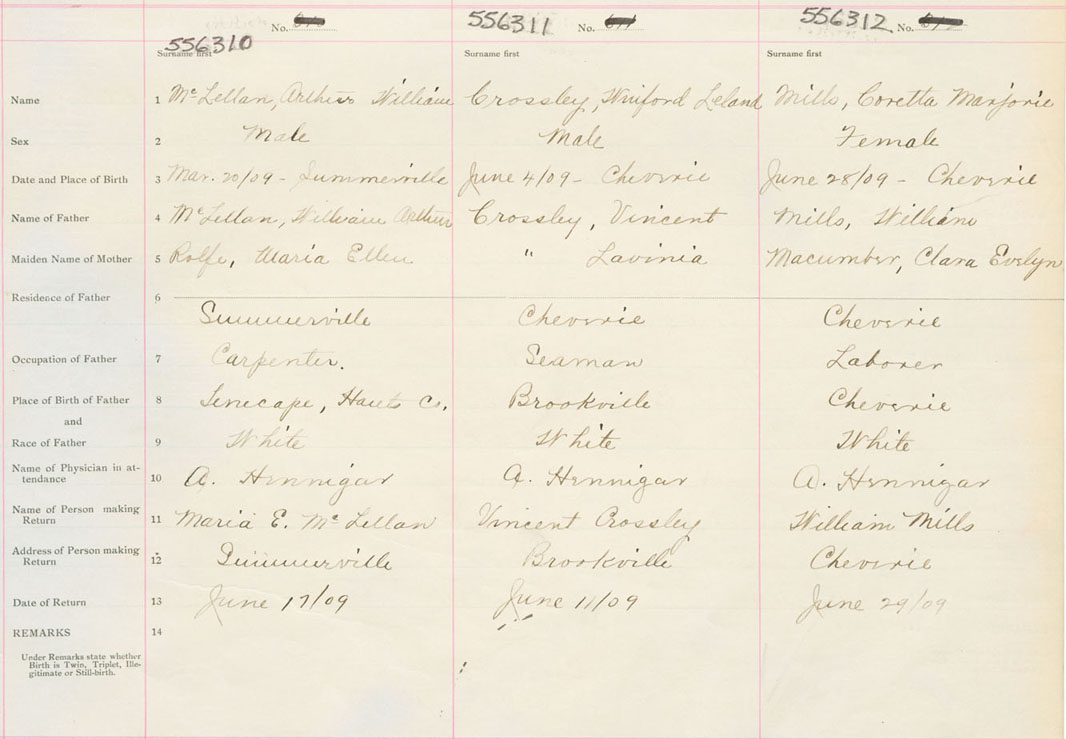 No. No. No.
556310 556311 556312
Surname first Surname first Surname first
Name 1 McLellan, Arthur William Crossley, Winford Leland Mills, Coretta Marjorie
Sex 2 Male Male Female
Date and Place of Birth 3 Mar. 20/09 - Summerville June 4/09 - Cheverie June 28/09 - Cheverie
Name of Father 4 McLellan, William Arthur Crossley, Vincent Mills, William
Maiden Name of Mother 5 Rolfe, Maria Ellen " Lavinia Macumber, Clara Evelyn
Residence of Father 6
Summerville Cheverie Cheverie
Occupation of Father 7 Carpenter. Seaman Laborer
Place of Birth of Father 8 Tenecape, Hants Co. Brookville Cheverie
and
Race of Father 9 White White White
Name of Physician in at-
tendance 10 A. Hennigar A. Hennigar A. Hennigar
Name of Person making
Return 11 Maria E. McLellan Vincent Crossley William Mills
Address of Person making
Return 12 Summerville Brookville Cheverie
Date of Return 13 June 17/09 June 11/09 June 29/09
REMARKS 14
Under Remarks state whether
Birth is Twin, Triplet, Ille-
gitimate or Still-birth.